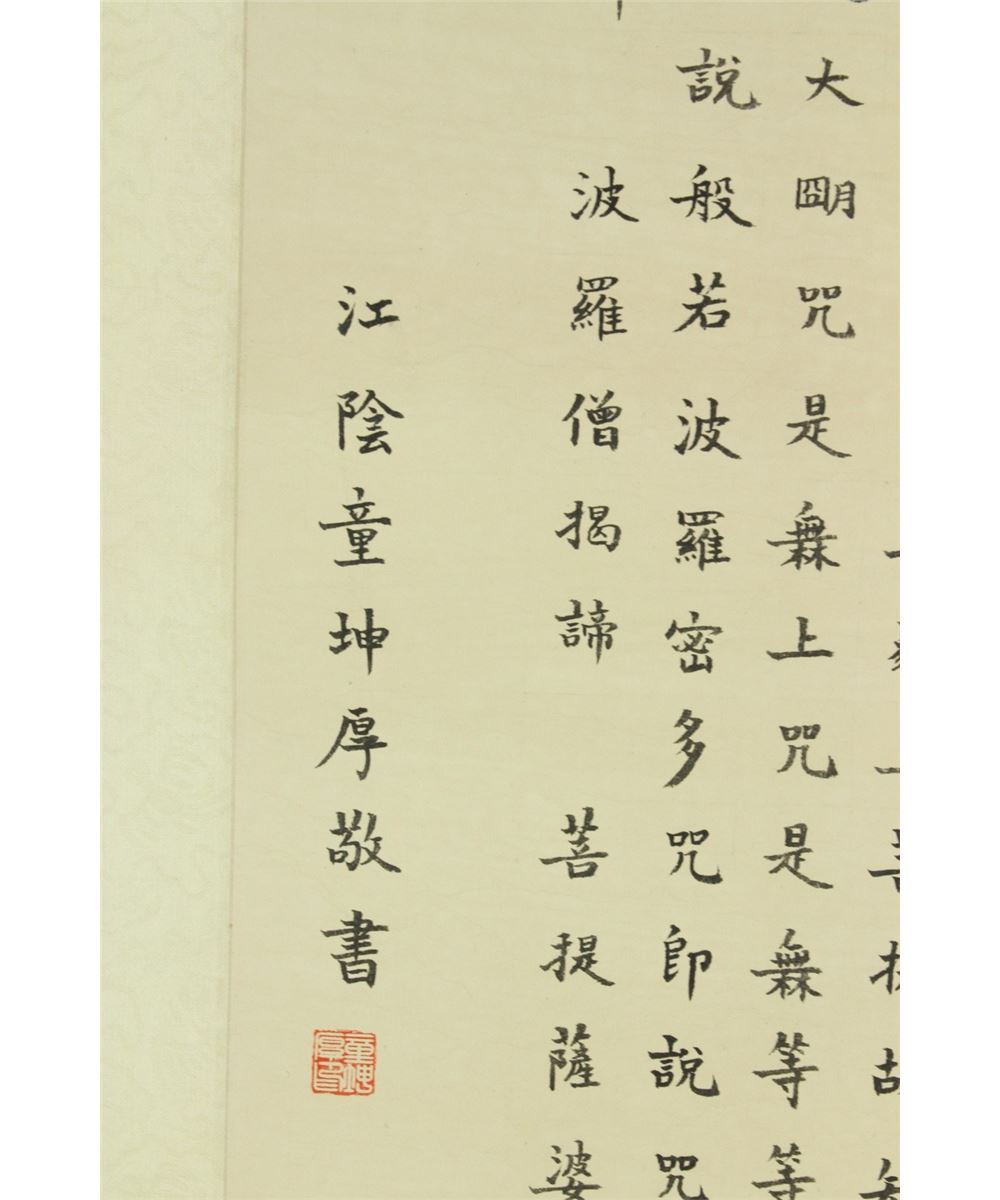 大朙咒是橆上咒是橆等等
說般若波羅密多咒即說咒
波羅僧揭諦 菩提薩婆
江陰童坤厚敬書
童坤厚印